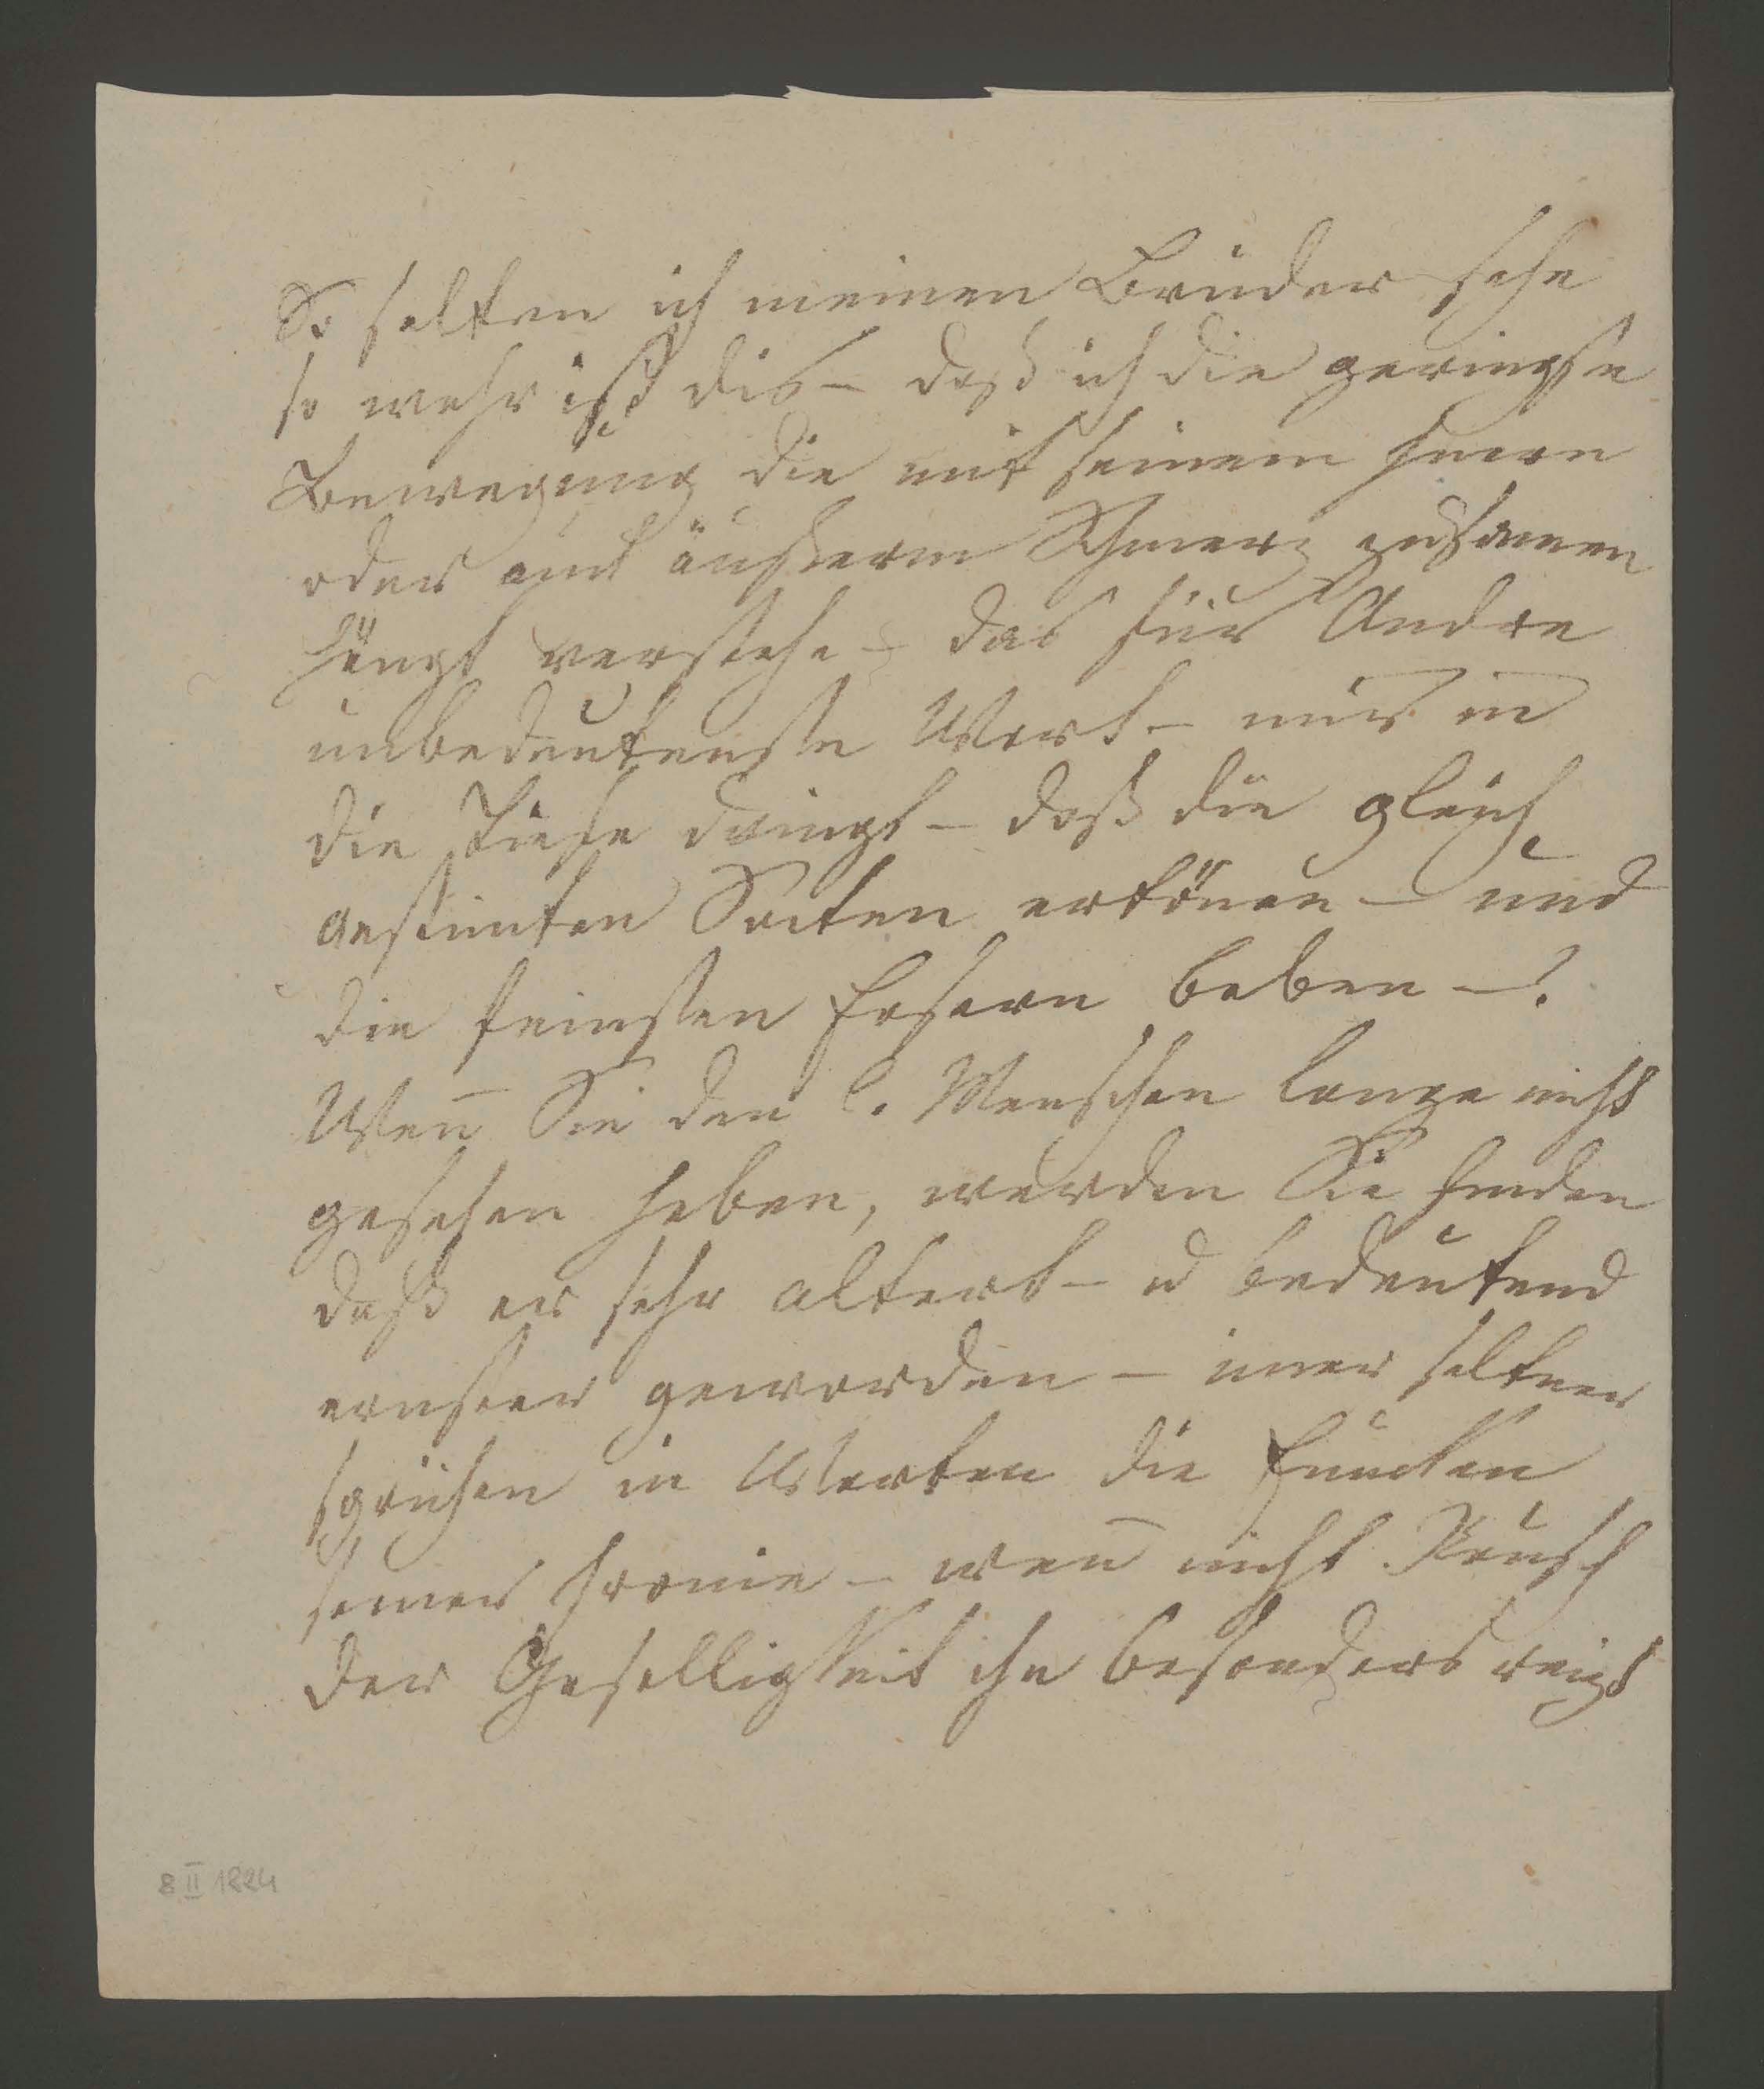 So selten ich meinen Bruder sehe
so wahr ist dis – daß ich die geringste
Bewegung die mit seinem Innern
oder mit äußerm Schmerz zusamen
hängt verstehe – das für Andre
unbedeutenste Wort – mir in
die Tiefe dringt – daß die gleich
gestimten Saiten ertönen – und
die feinsten Fasern beben –!
Wen̄ Sie den l. Menschen lange nicht
gesehen haben, werden Sie finden
daß er sehr altert – u bedeutend
ernster geworden – imer seltner
sprühen in Worten die Funcken
seiner Ironie – wen̄ nicht Rausch
der Geselligkeit ihn besonders reizt
8 II 1824